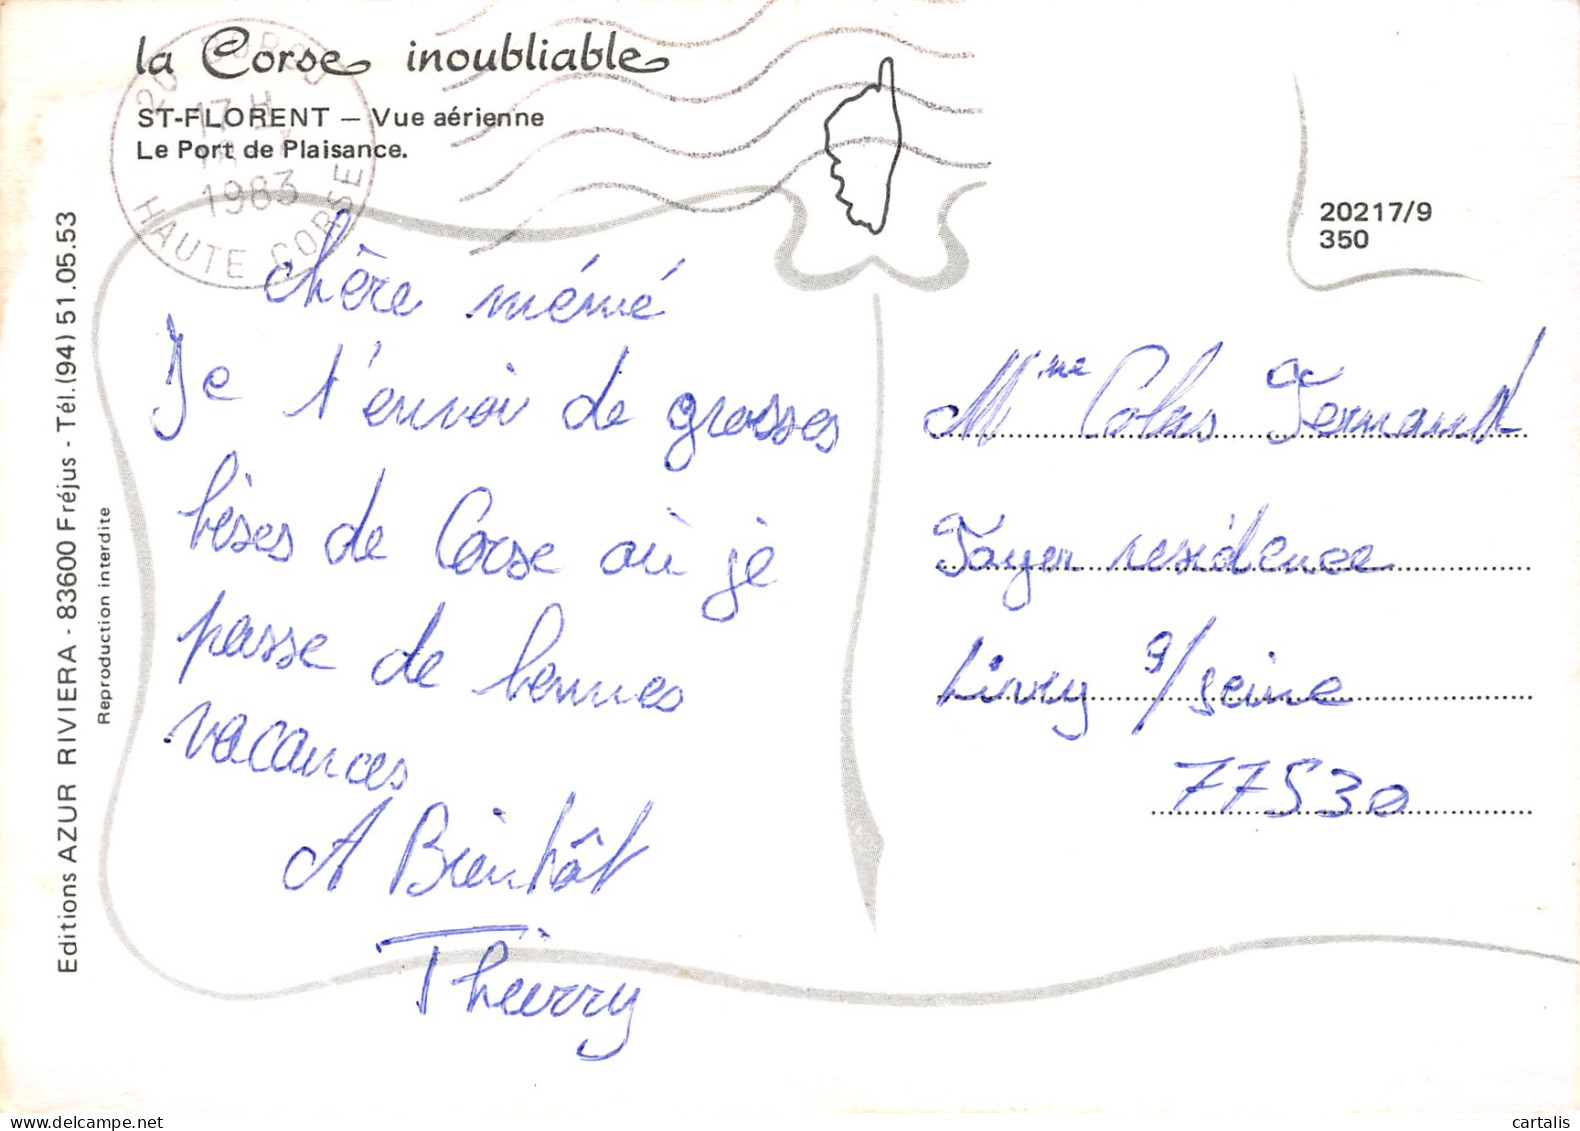 la Corse inoubliable
ST-FLORENT — Vue aérienne
Le Port de Plaisance.
17 H
1983
HAUTE CORSE
20217/9
350
Editions AZUR RIVIERA - 83600 Fréjus - Tél.(94) 51.05.53
Reproduction interdite
chère mémé
Je t'envoi de grosses
bises de Corse où je
passe de bonnes
vacances
A Bientôt
Thierry
Mme Colas Fernand
Foyer residence
Livry s/seine
77530
cartalis